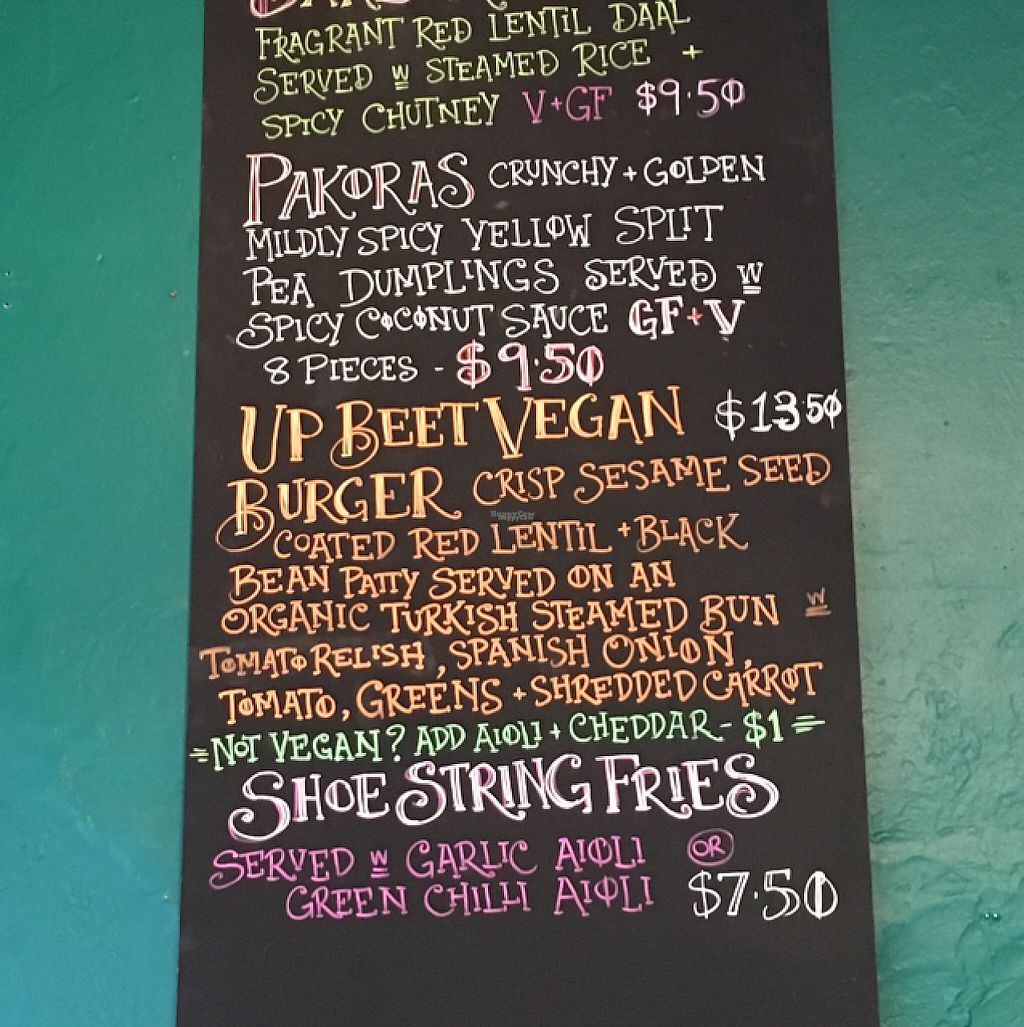 FRAGRANT RED LENTIL DAAL
SERVED W STEAMED RICE +
SPICY CHUTNEY V+GF $9.50
PAKORAS CRUNCHY + GOLDEN
MILDLY SPICY YELLOW SPLIT
PEA DUMPLINGS SERVED W
SPICY COCONUT SAUCE GF+V
8 PIECES - $9.50
UP BEET VEGAN $13.50
BURGER CRISP SESAME SEED
COATED RED LENTIL + BLACK
BEAN PATTY SERVED ON AN
ORGANIC TURKISH STEAMED BUN W
TOMATO RELISH, SPANISH ONION,
TOMATO, GREENS + SHREDDED CARROT
=NOT VEGAN? ADD AIOLI + CHEDDAR - $1=
SHOE STRING FRIES
SERVED W GARLIC AIOLI OR
GREEN CHILLI AIOLI $7.50
HappyCow